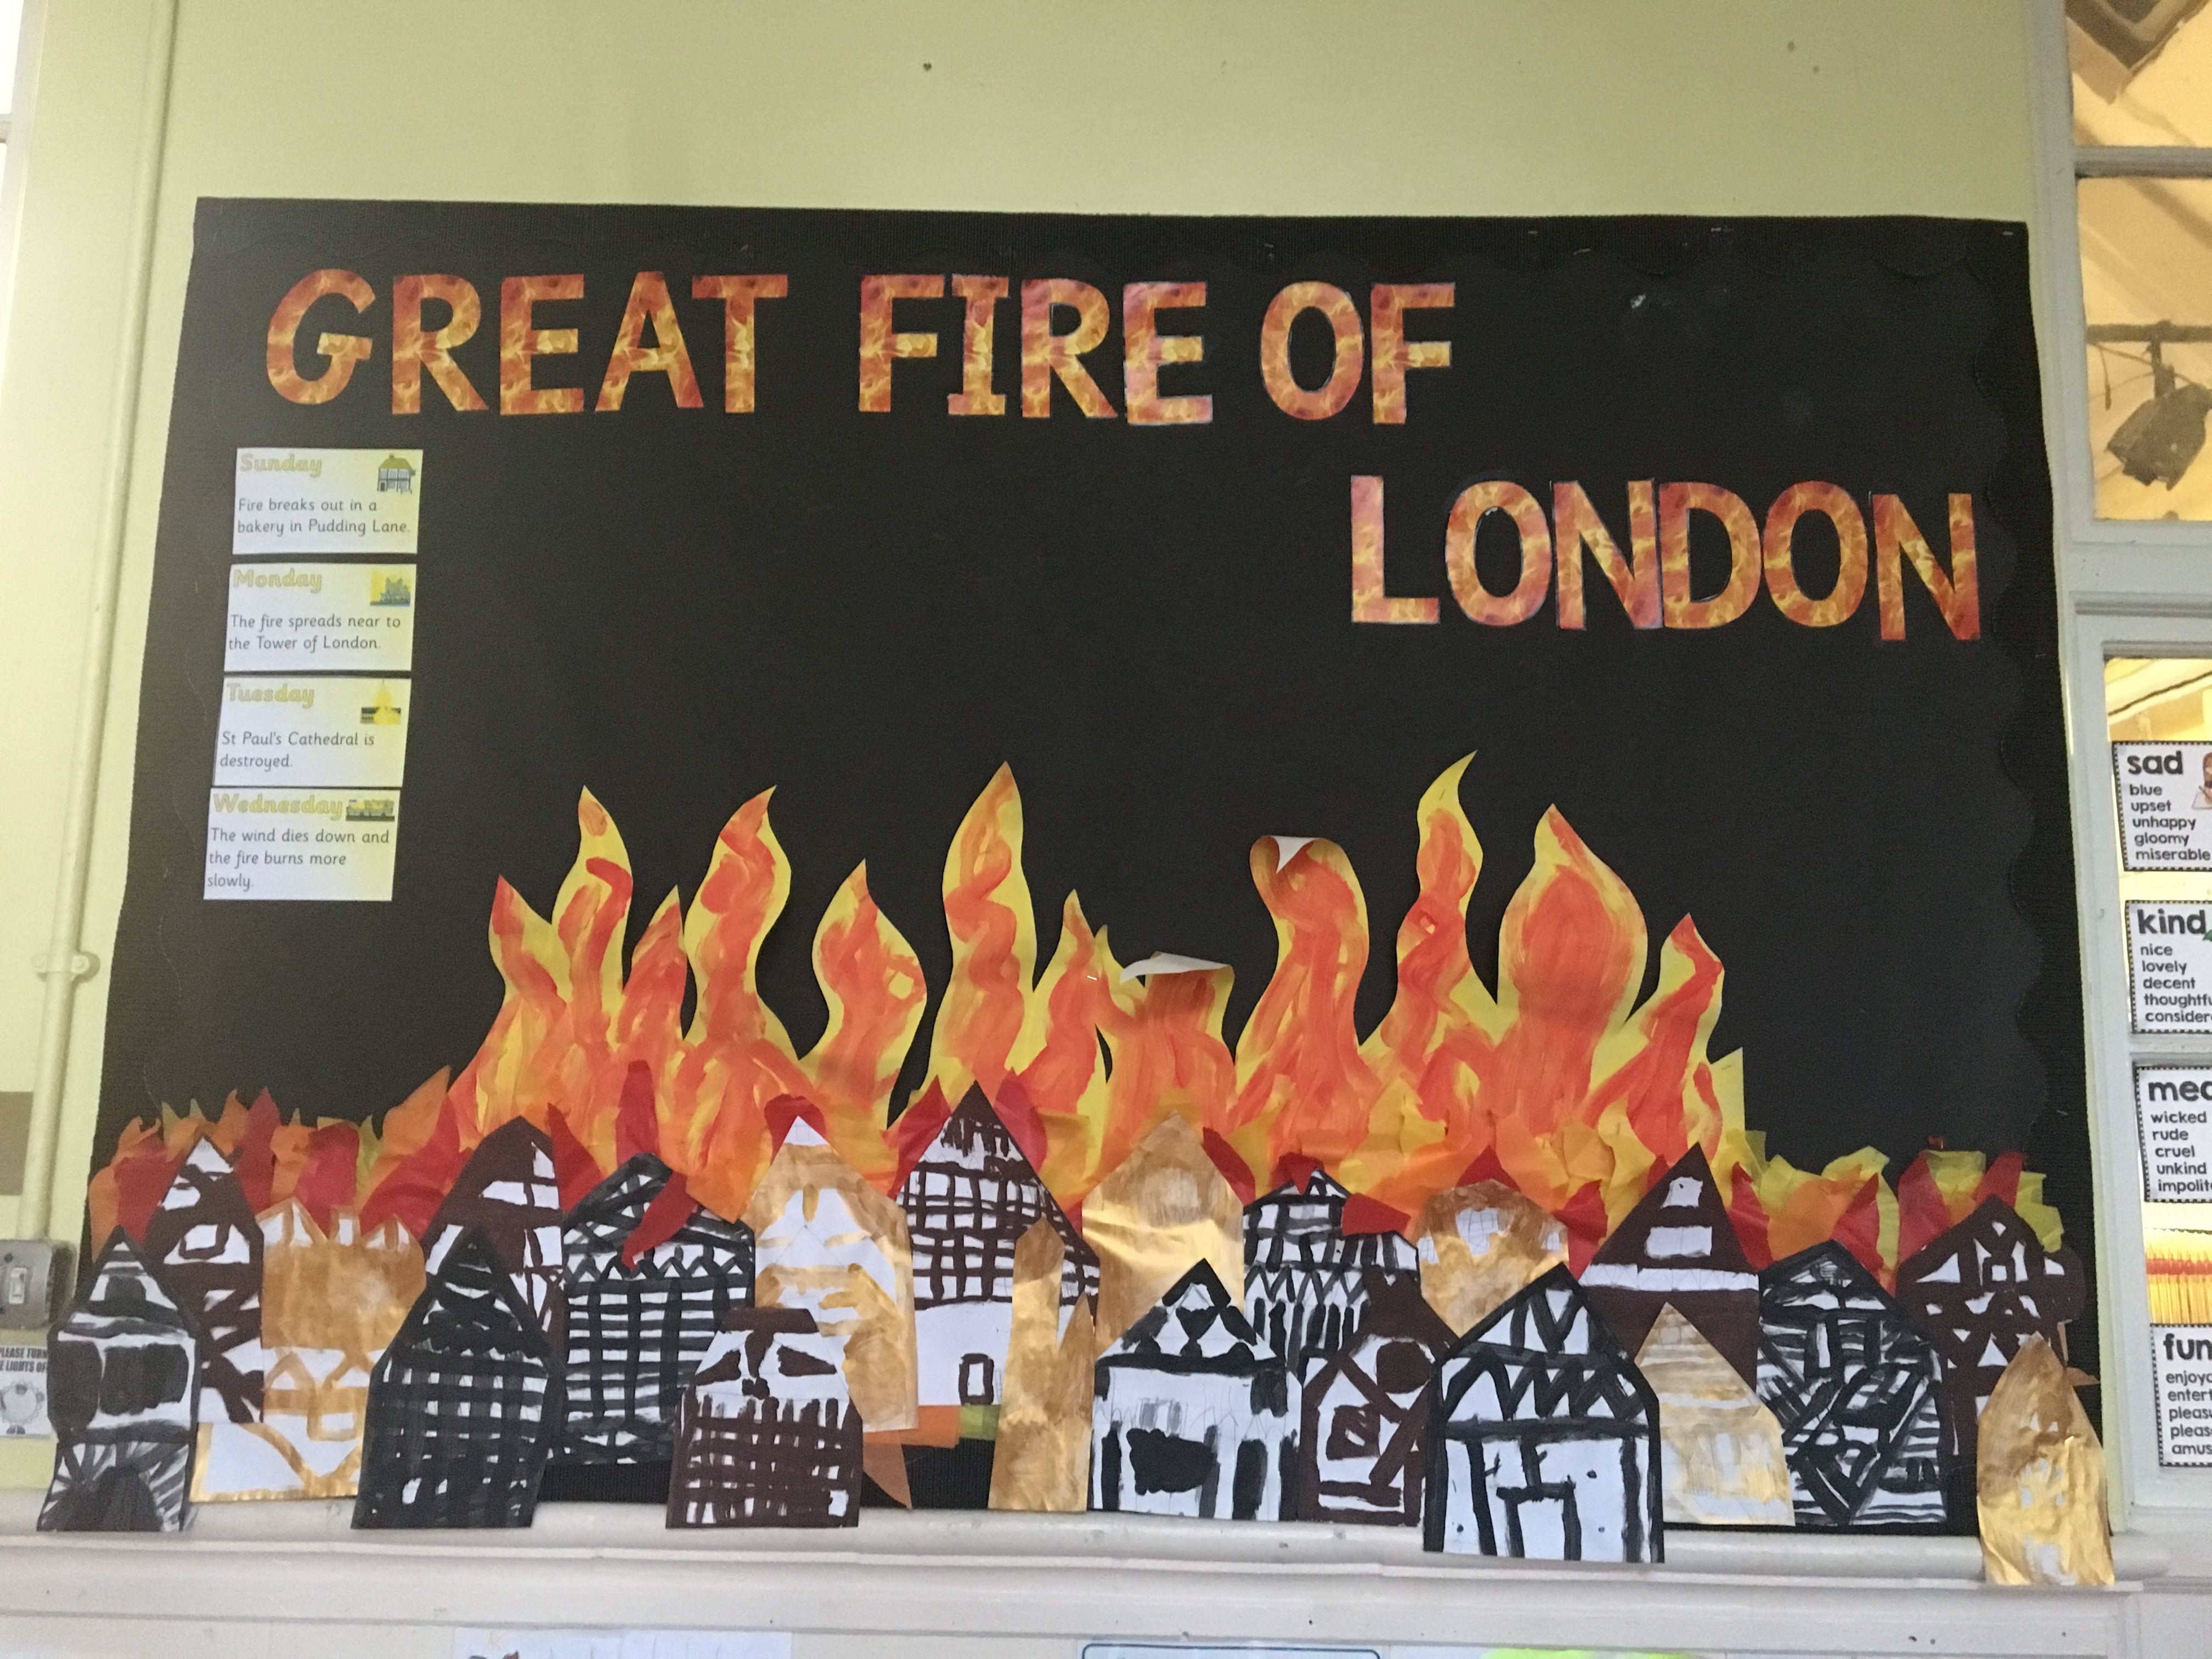 GREAT FIRE OF
LONDON
Sunday
Fire breaks out in a
bakery in Pudding Lane.
Monday
The fire spreads near to
the Tower of London.
Tuesday
St Paul's Cathedral is
destroyed.
Wednesday
The wind dies down and
the fire burns more
slowly.
sad
blue
upset
unhappy
gloomy
miserable
kind
nice
lovely
decent
thoughtfu
consider
mea
wicked
rude
cruel
unkind
impolit
fun
enjoy
entert
pleas
pleas
amus
PLEASE TURN
LIGHTS OF